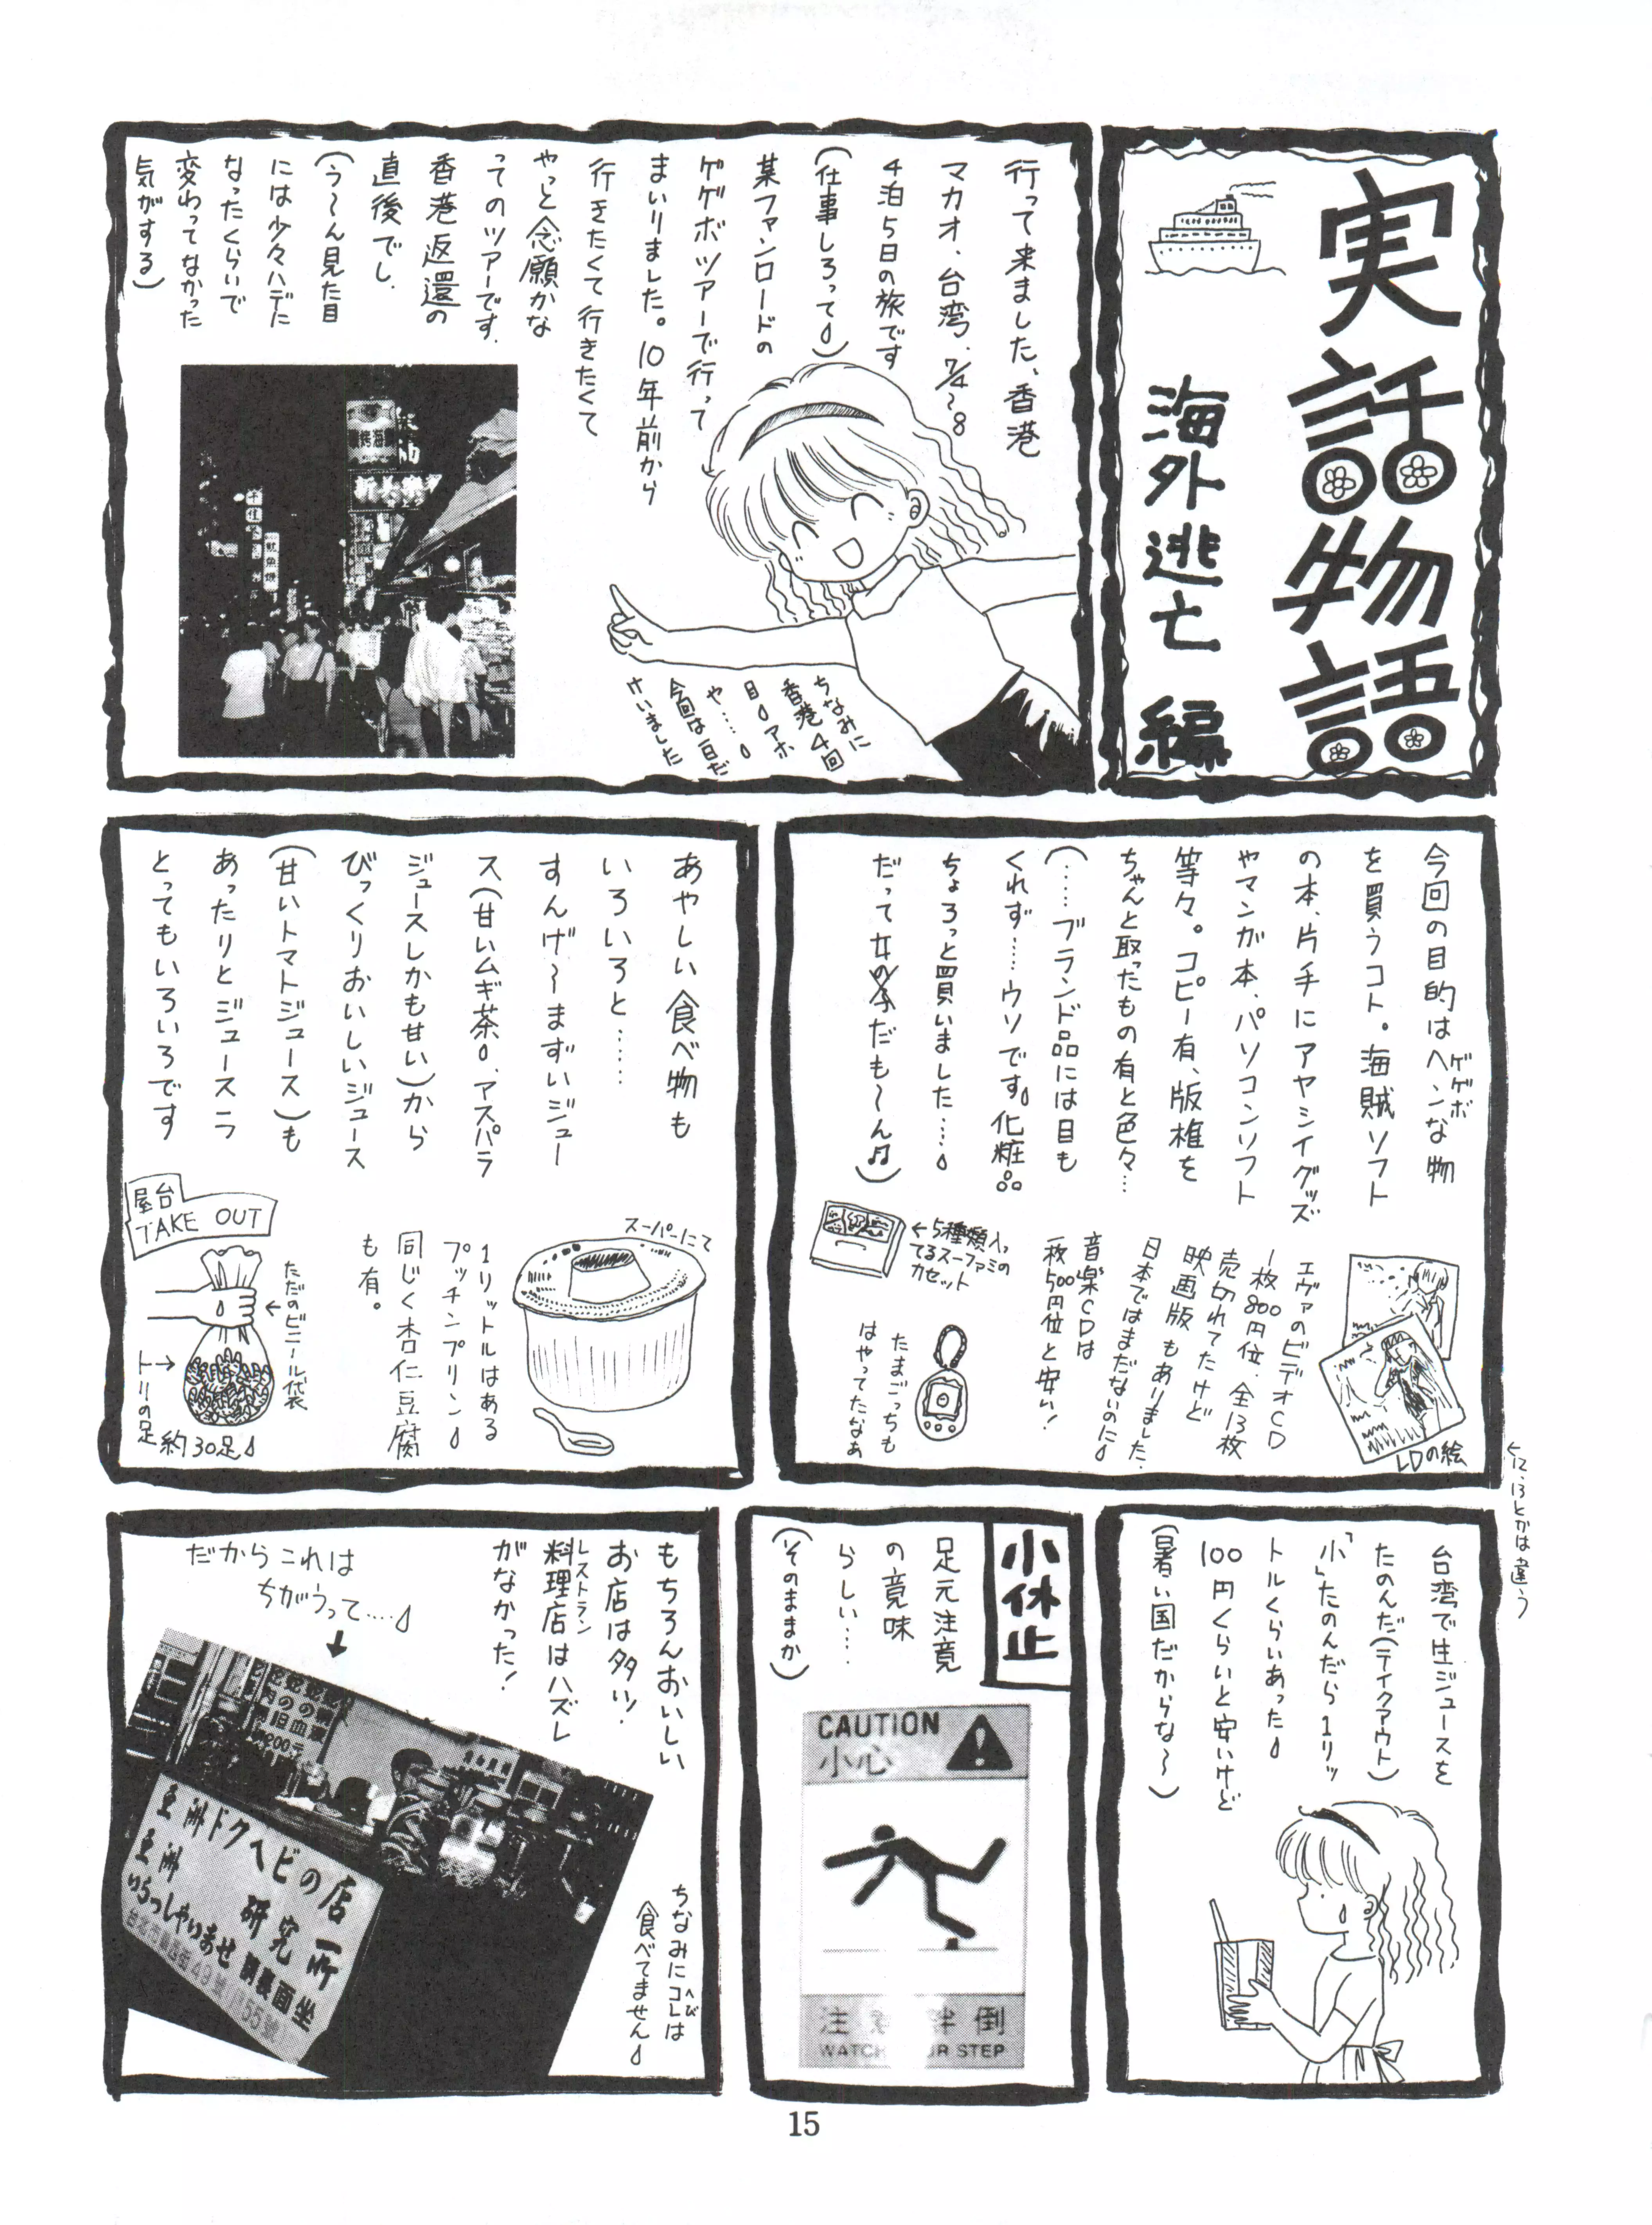 実話物語
海外逃亡編
行って来ました、香港
マカオ、台湾、7/4〜8
4泊5日の旅です
(仕事しろって)
某ファンロードの
ゲゲボツアーで行って
まいりました。10年前から
行きたくて行きたくて
やっと念願かな
ってのツアーです。
香港返還の
直後でし、
(う〜ん見た目
には少々ハデに
なったくらいで
変わってなかった
気がする)
ちなみに
香港4回
目アホ
や……
今回は一日だ
けいました
今回の目的はヘンな物
ゲゲボ
を買うコト。海賊ソフト
の本、片手にアヤシイグッズ
やマンガ本、パソコンソフト
等々。コピー有、版権を
ちゃんと取ったもの有と色々…
(……ブランド品には目も
くれず……ウソです。化粧品
ちょろっと買いました……
だって女の子だも〜ん♫)
エヴァのビデオCD
一枚800円位、全13枚
売切れてたけど
映画版もありました。
日本ではまだないのに
音楽CDは
一枚500円位と安い!
←5種類入っ
てるスーファミの
カセット
たまごっちも
はやってたなあ
LDの絵
←12、13とかは違う
あやしい食べ物も
いろいろと……
すんげ〜まずいジュー
ス(甘いムギ茶、アスパラ
ジュースしかも甘い)から
びっくりおいしいジュース
(甘いトマトジュース)も
あったりとジュースラ
とってもいろいろです
スーパーにて
1リットルはある
プッチンプリン
同じく杏仁豆腐
も有。
屋台
TAKE OUT
←ただのビニール袋
トリの足→
約30足
台湾で生ジュースを
たのんだ(テイクアウト)
「小」たのんだら1リッ
トルくらいあった
100円くらいと安いけど
(暑い国だからな〜)
小休止
足元注意
の意味
らしい……
(そのままか)
CAUTION
小心
注意 絆倒
WATCH YOUR STEP
もちろんおいしい
お店は多い!
料理店はハズレ
レストラン
がなかった!
だからこれは
ちがうって……
↓
亜洲ドクヘビの店
亜洲 研究所
いらっしゃいませ 請裏面坐
ちなみにコレは
へび
食べてません
15